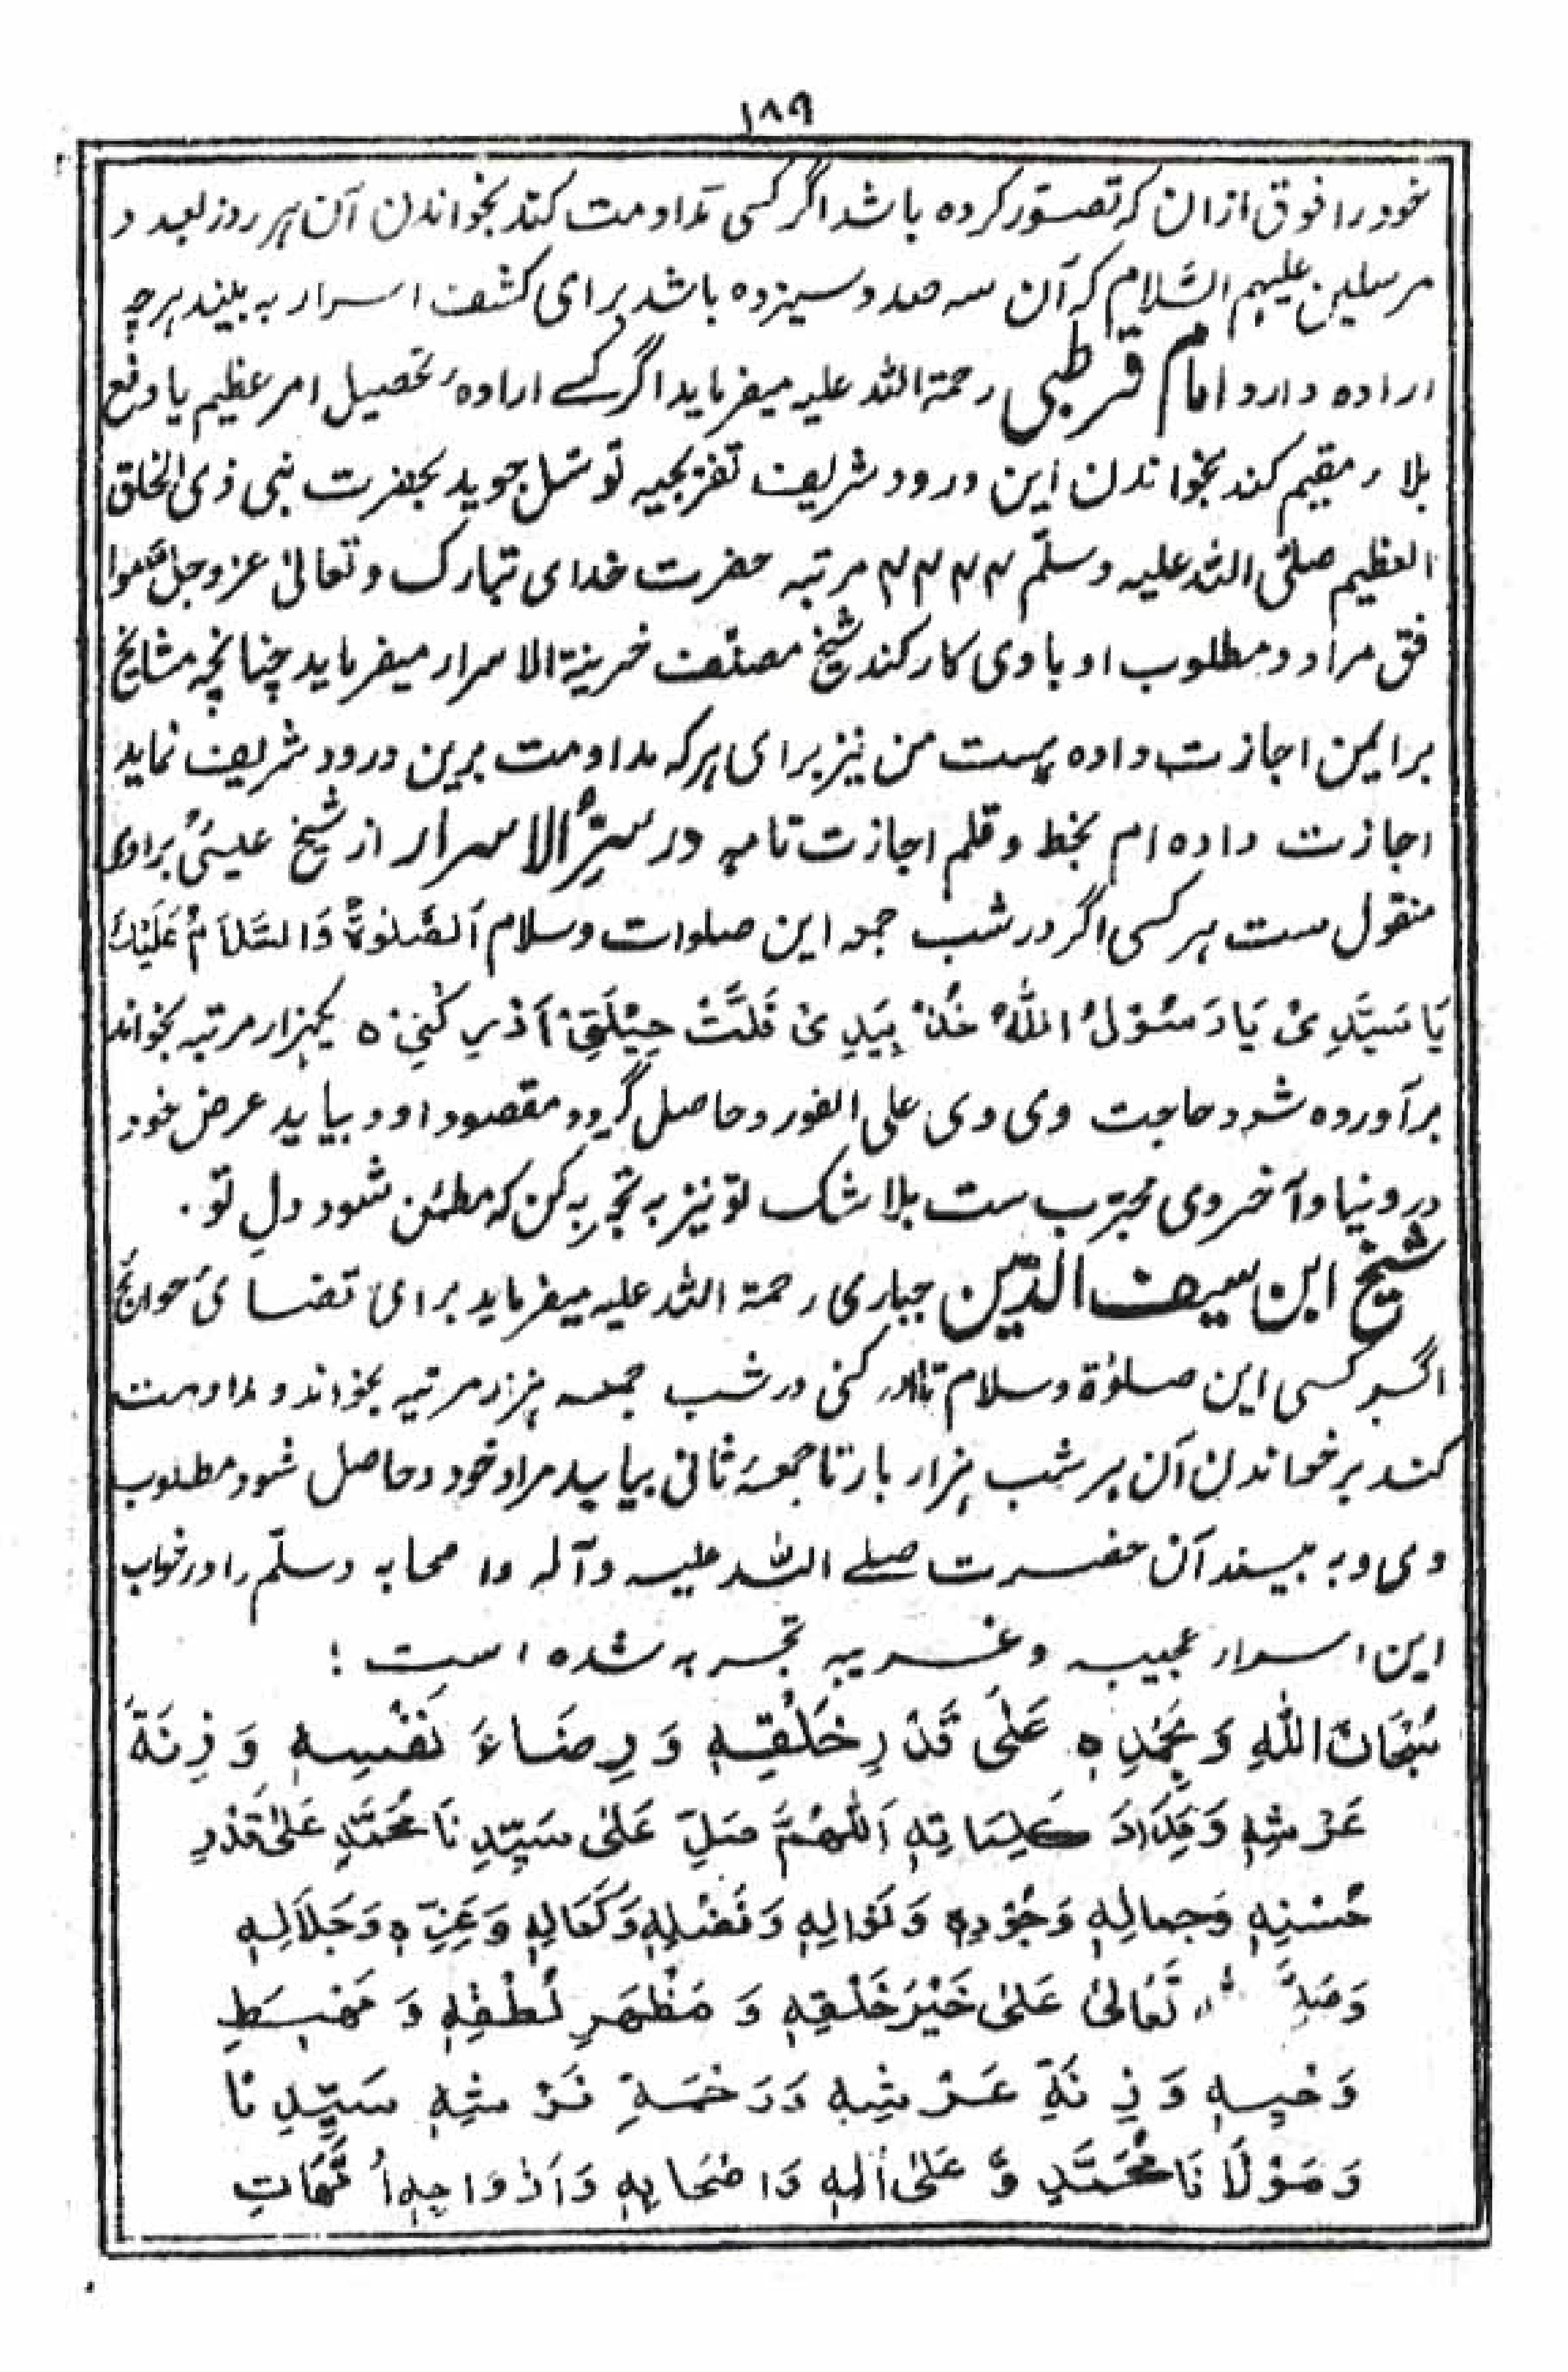 ۱۸۹
خود را فوق ازان که تصوّر کرده باشد اگر کسی مداومت کند بخواندن آن هر روز بعدد
مرسلین علیہم السَّلام که آن سه صد و سیزده باشد برای کشف اسرار به بیند هرچه
اراده دارد امام قرطبی رحمۃ اللہ علیہ میفرماید اگر کسے ارادهٔ تحصیل امر عظیم یا دفع
بلاء مقیم کند بخواندن این درود شریف تفریجیه توسّل جوید بحضرت نبی ذی الخلق
العظیم صلّی اللہ علیہ وسلّم ۴۴۴۴ مرتبہ حضرت خدای تبارک و تعالیٰ عزوجل موا
فق مراد و مطلوب او با وی کار کند شیخ مصنّف خزینۃ الاسرار میفرماید چنانچہ مشایخ
برایمن اجازت داده ہست من نیز برای ہرکہ مداومت برین درود شریف نماید
اجازت داده ام بخط و قلم اجازت تامہ در سِرُّ الاسرار از شیخ عیسیٰ براوی
منقول ست ہر کسی اگر در شب جمعہ این صلوات وسلام اَلصَّلوٰةُ وَالسَّلَامُ عَلَیْكَ
یَا سَیِّدِیْ یَا رَسُوْلَ اللّٰهِ خُذْ بِیَدِیْ قَلَّتْ حِیْلَتِیْ اَدْرِكْنِیْ ه یکہزار مرتبہ بخواند
برآورده شود حاجت وی وی علی الفور و حاصل گردد مقصود او و بیابد عرض خود
در دنیا و آخروی مجرّب ست بلا شک تو نیز بہ تجربہ کن کہ مطمئن شود دلِ تو .
شیخ ابن سیف الدّین جباری رحمۃ اللہ علیہ میفرماید برای قضائ حوائج
اگر کسی این صلوٰة وسلام تا ادرکنی در شب جمعہ ہزار مرتبہ بخواند و مداومت
کند برخواندن آن ہر شب ہزار بار تا جمعۂ ثانی بیابد مراد خود و حاصل شود مطلوب
وی و بہ بیند آن حضرت صلے اللہ علیہ وآلہ وا صحابہ وسلّم را در خواب
این اسرار عجیبہ وغریبہ تجربہ شده است :
سُبْحَانَ اللّٰهِ وَبِحَمْدِهٖ عَلٰی قَدْرِ خَلْقِهٖ وَرِضَاءَ نَفْسِهٖ وَزِنَةَ
عَرْشِهٖ وَمِدَادَ كَلِمَاتِهٖ اَللّٰهُمَّ صَلِّ عَلٰی سَیِّدِنَا مُحَمَّدٍ عَلٰی قَدْرِ
حُسْنِهٖ وَجمالِهٖ وَجُوْدِهٖ وَنَوَالِهٖ وَفَضْلِهٖ وَكَمَالِهٖ وَعِزِّهٖ وَجَلَالِهٖ
وَصَلِّ تَعَالیٰ عَلٰی خَیْرِ خَلْقِهٖ وَ مَظْهَرِ لُطْفِهٖ وَ مَهْبِطِ
وَحْیِهٖ وَزِنَةِ عَرْشِهٖ وَرَحْمَةِ فَرْشِهٖ سَیِّدِنَا
وَمَوْلَانَا مُحَمَّدٍ وَّ عَلٰی اٰلِهٖ وَاَصْحَابِهٖ وَاَزْوَاجِهٖ اُمَّهَاتِ